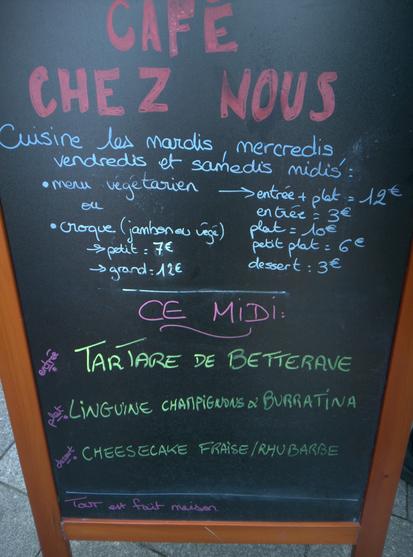 CAFÉ
CHEZ NOUS
Cuisine les mardis, mercredis
vendredis et samedis midis :
• menu végétarien → entrée + plat = 12€
ou
entrée = 3€
• croque (jambon ou végé)
plat = 10€
→ petit = 7€
petit plat = 6€
→ grand = 12€
dessert : 3€
CE MIDI :
entrée • TARTARE DE BETTERAVE
plat • LINGUINE CHAMPIGNONS & BURRATINA
dessert • CHEESECAKE FRAISE/RHUBARBE
Tout est fait maison